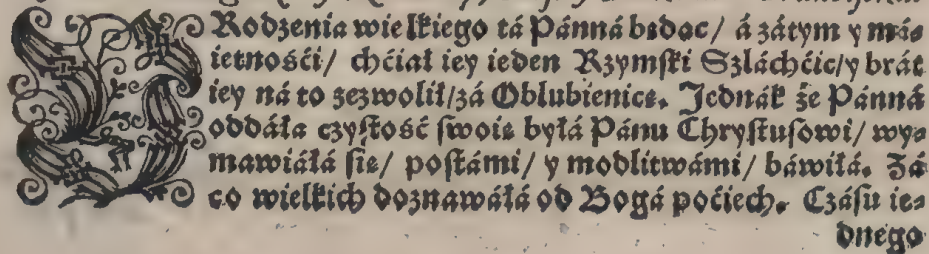 Z Rodzenia wielkiego tá Pánná będąc/ á zátym y má⸗
ietnośći/ chćiał iey ieden Rzymſki Szláchćic/ y brát
iey ná to zezwolił/ zá Oblubienicę. Jednák że Pánná
oddáłá czyſtość ſwoię byłá Pánu Chryſtuſowi/ wy⸗
mawiáłá ſię/ poſtámi/ y modlitwámi/ báwiłá. Zá
co wielkich doznawáłá od Bogá poćiech. Czáſu ie⸗
dnego